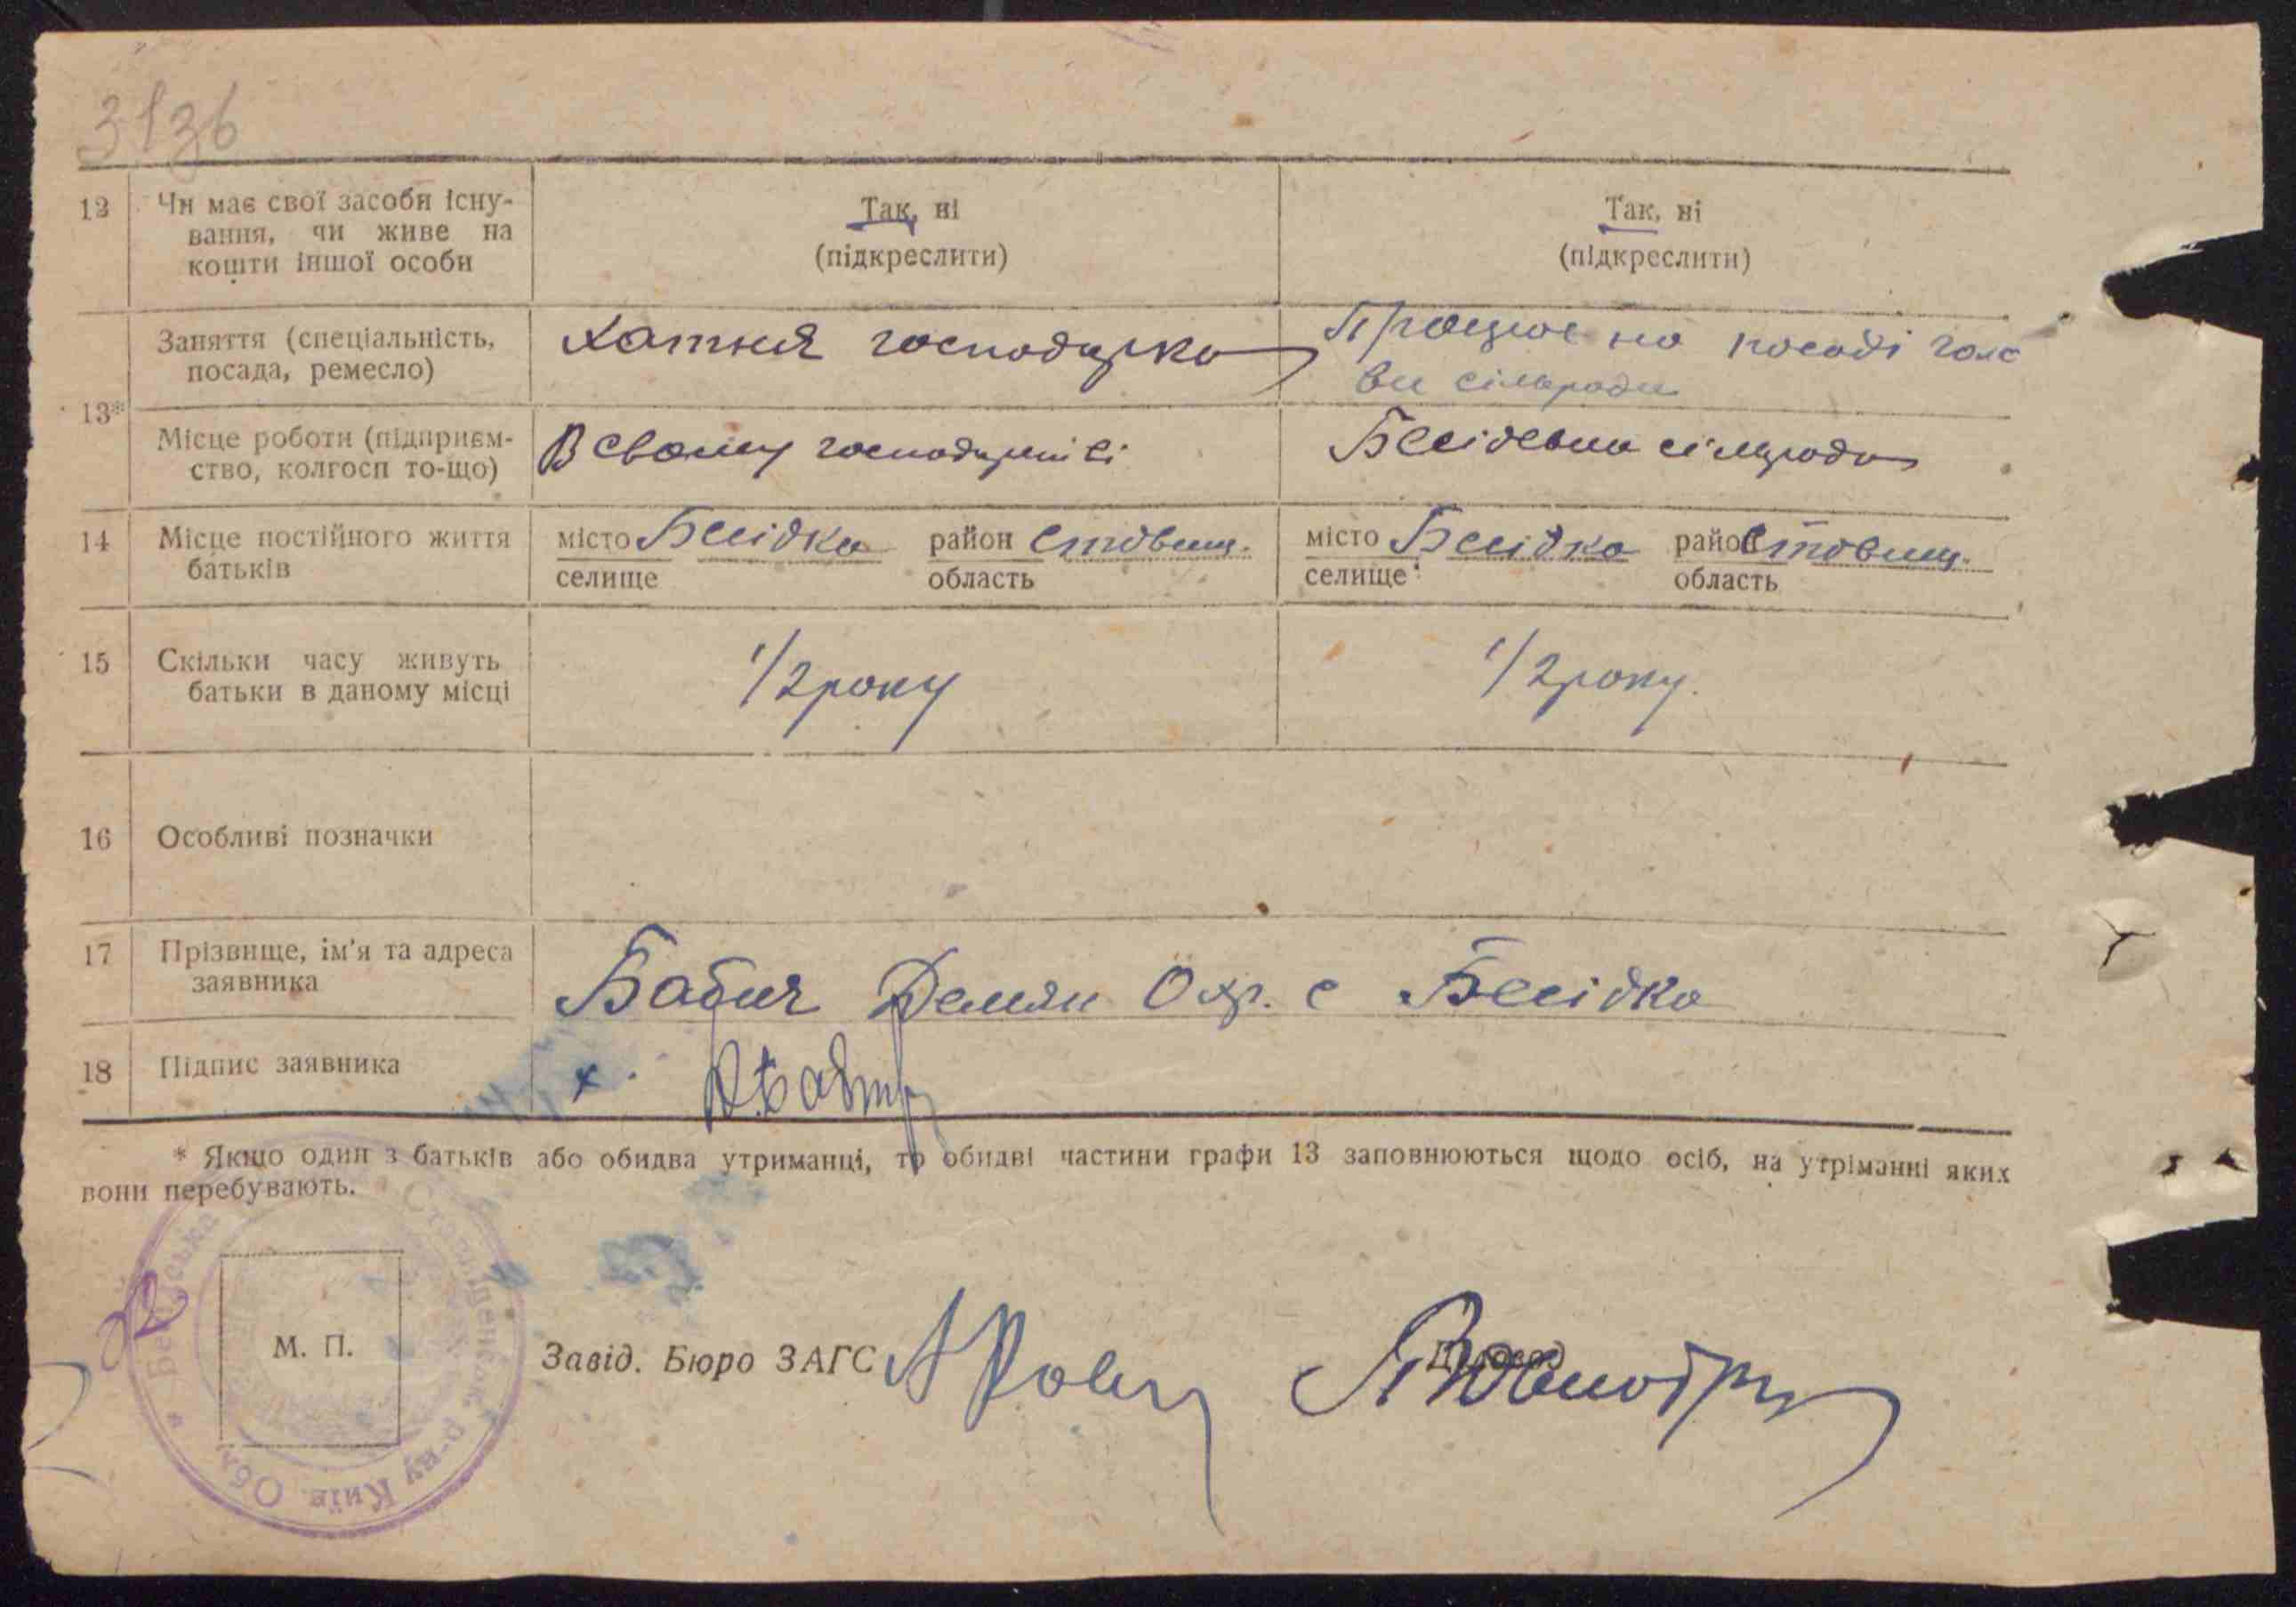 3136
12 Чи має свої засоби існу-
вання, чи живе на
кошти іншої особи
Так, ні
(підкреслити)
Так, ні
(підкреслити)
13*
Заняття (спеціальність,
посада, ремесло)
Хатня господарка
Працює на посаді голо
ви сільради
Місце роботи (підприєм-
ство, колгосп то-що)
В своему господарстві
Бесідська сільрада
14 Місце постійного життя
батьків
місто Бесідка район Ставищ.
селище область
місто Бесідка район Ставищ.
селище область
15 Скільки часу живуть
батьки в даному місці
1/2 року
1/2 року.
16 Особливі позначки
17 Прізвище, ім'я та адреса
заявника
Бабич Демян с Бесідка
18 Підпис заявника
* Якщо один з батьків або обидва утриманці, то обидві частини графи 13 заповнюються щодо осіб, на утріманні яких
вони перебувають.
М. П.
Завід. Бюро ЗАГС
р-ну Київ. Обл.